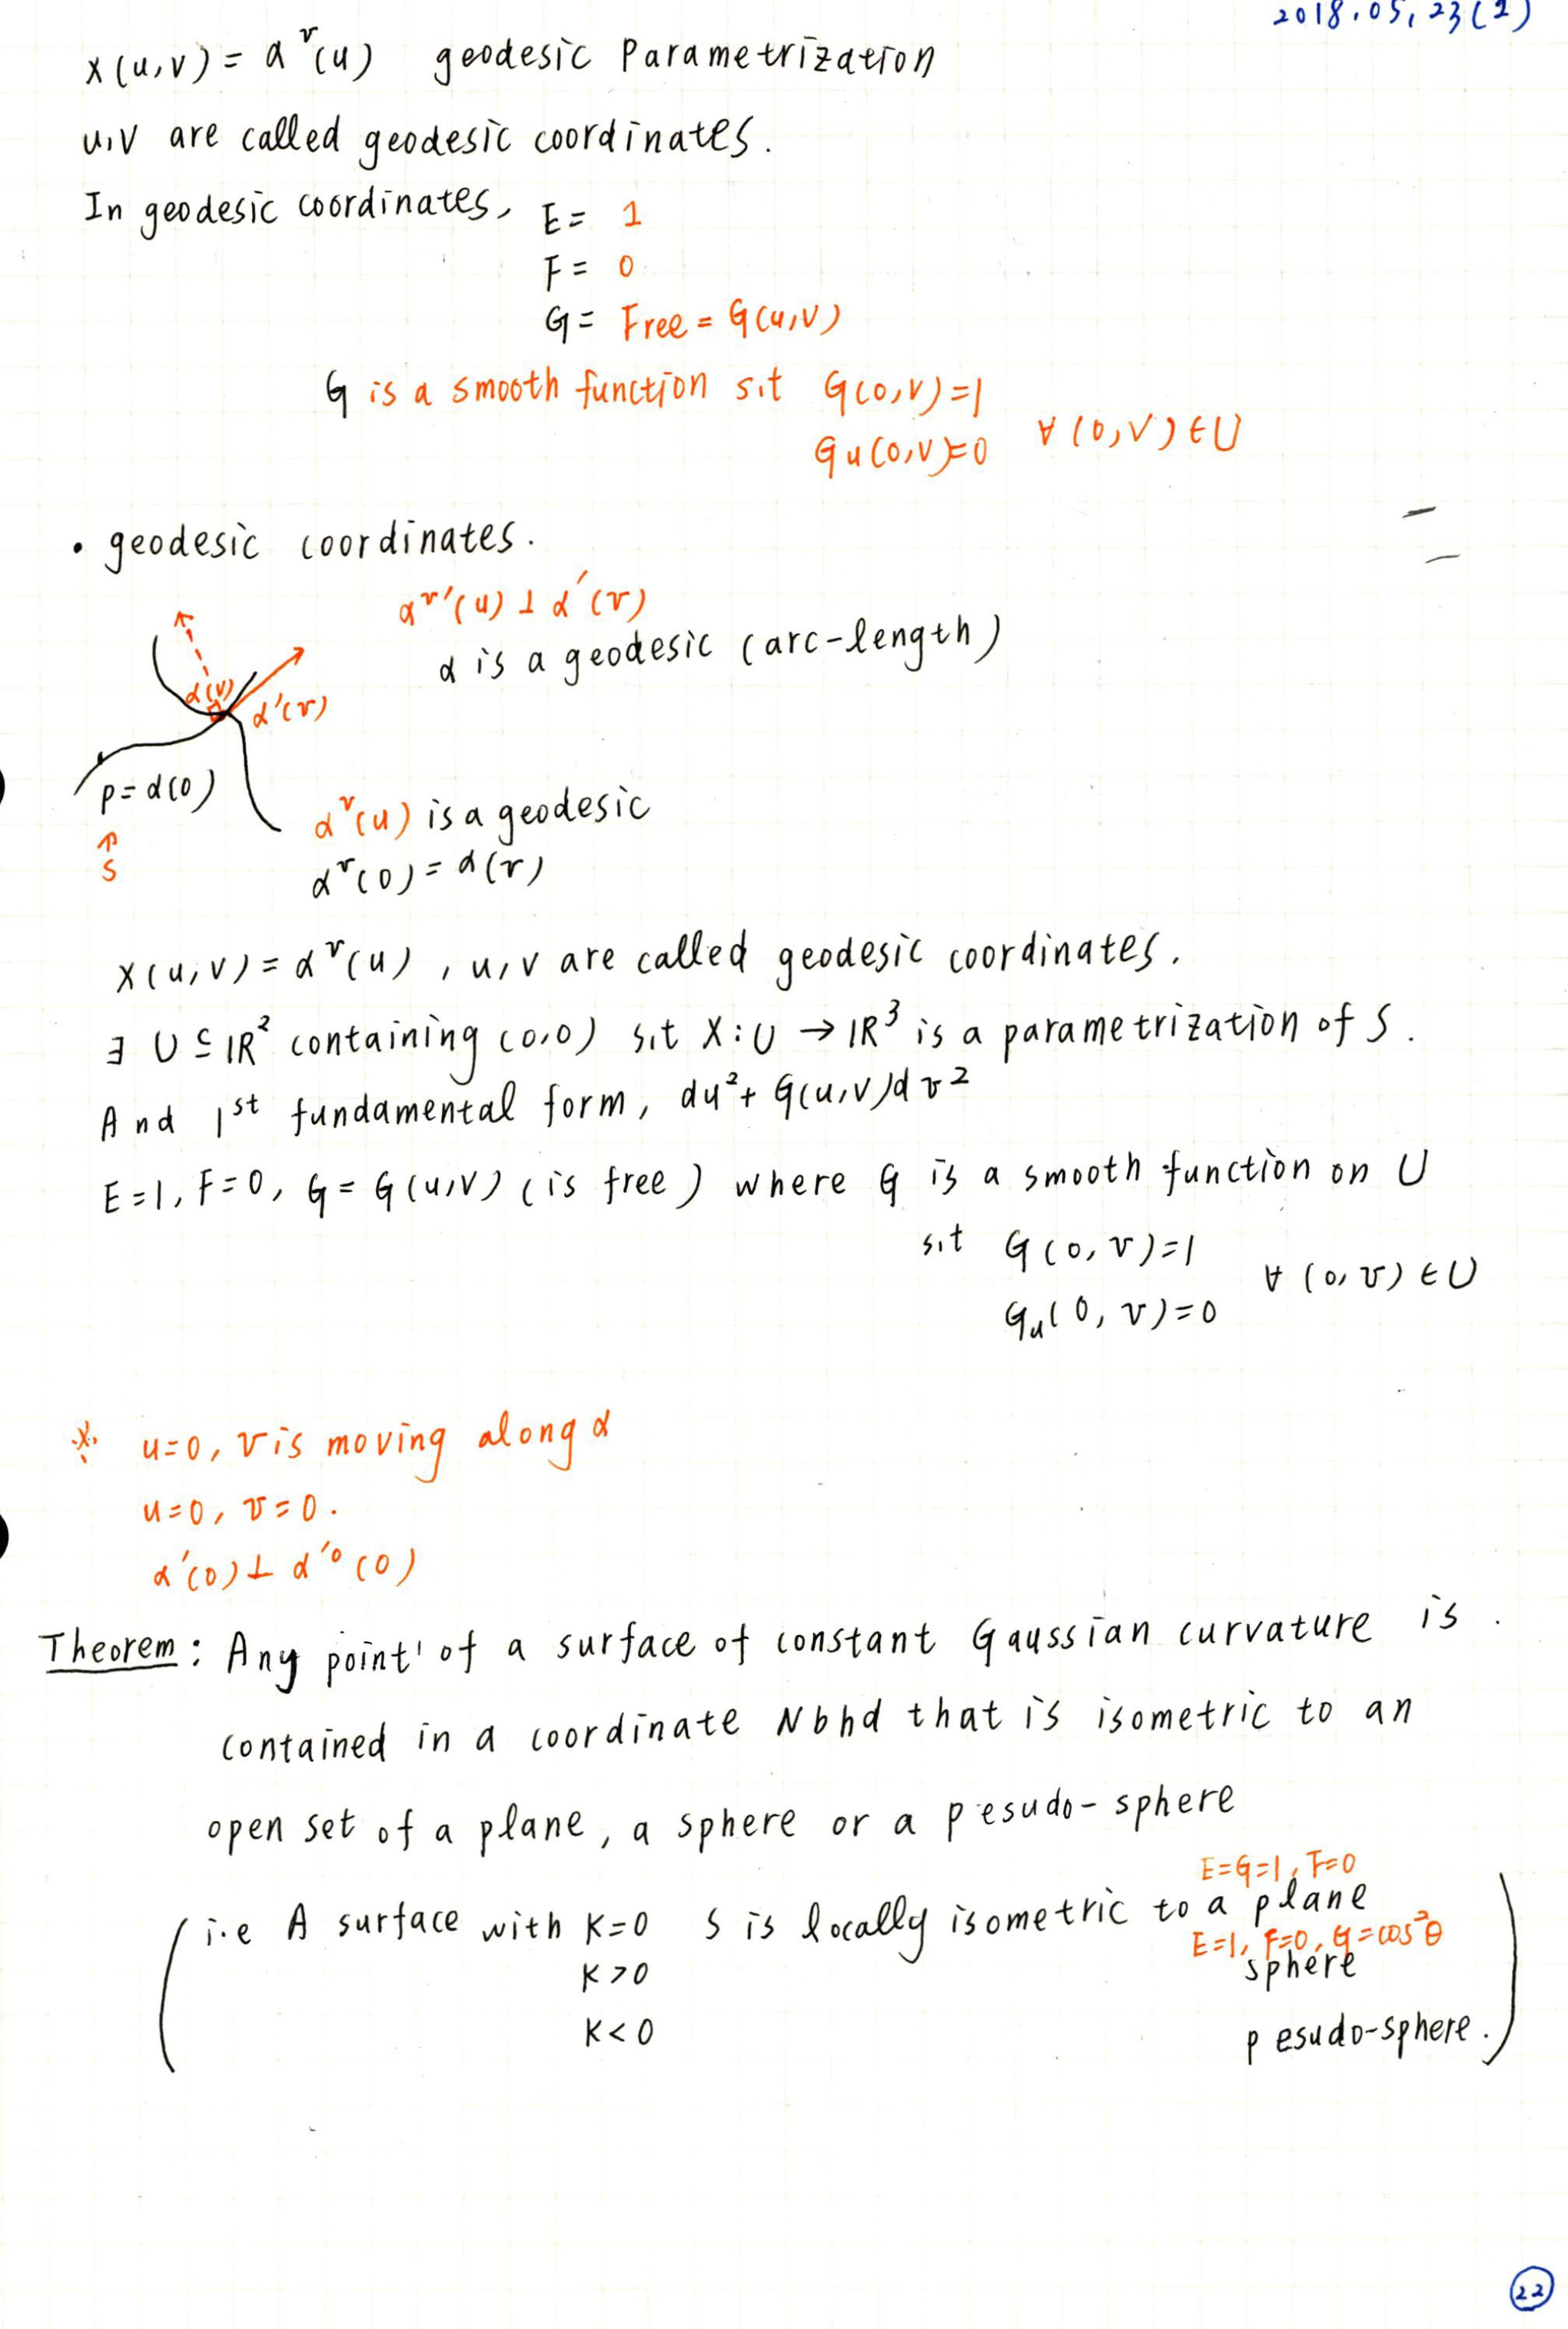 2018.05.23(2)
x(u,v) = α^v(u) geodesic Parametrization
u,v are called geodesic coordinates.
In geodesic coordinates, E = 1
F = 0
G = Free = G(u,v)
G is a smooth function s.t G(0,v)=1
Gu(0,v)=0 ∀ (0,v) ∈ U
• geodesic coordinates.
α^v'(u) ⊥ α'(v)
α is a geodesic (arc-length)
α(v)
α'(v)
p = α(0)
↑
S
α^v(u) is a geodesic
α^v(0) = α(v)
x(u,v) = α^v(u) , u,v are called geodesic coordinates.
∃ U ⊆ ℝ² containing (0,0) s.t X : U → ℝ³ is a parametrization of S.
And 1st fundamental form, du² + G(u,v)dv²
E=1, F=0, G = G(u,v) (is free) where G is a smooth function on U
s.t G(0,v)=1
Gu(0,v)=0 ∀ (0,v) ∈ U
※ u=0, v is moving along α
u=0, v=0.
α'(0) ⊥ α'^0(0)
Theorem : Any point of a surface of constant Gaussian curvature is
contained in a coordinate Nbhd that is isometric to an
open set of a plane, a sphere or a pesudo-sphere
E=G=1, F=0
(i.e A surface with K=0 S is locally isometric to a plane
E=1, F=0, G=cos²θ
K>0 sphere
K<0 pesudo-sphere.)
22